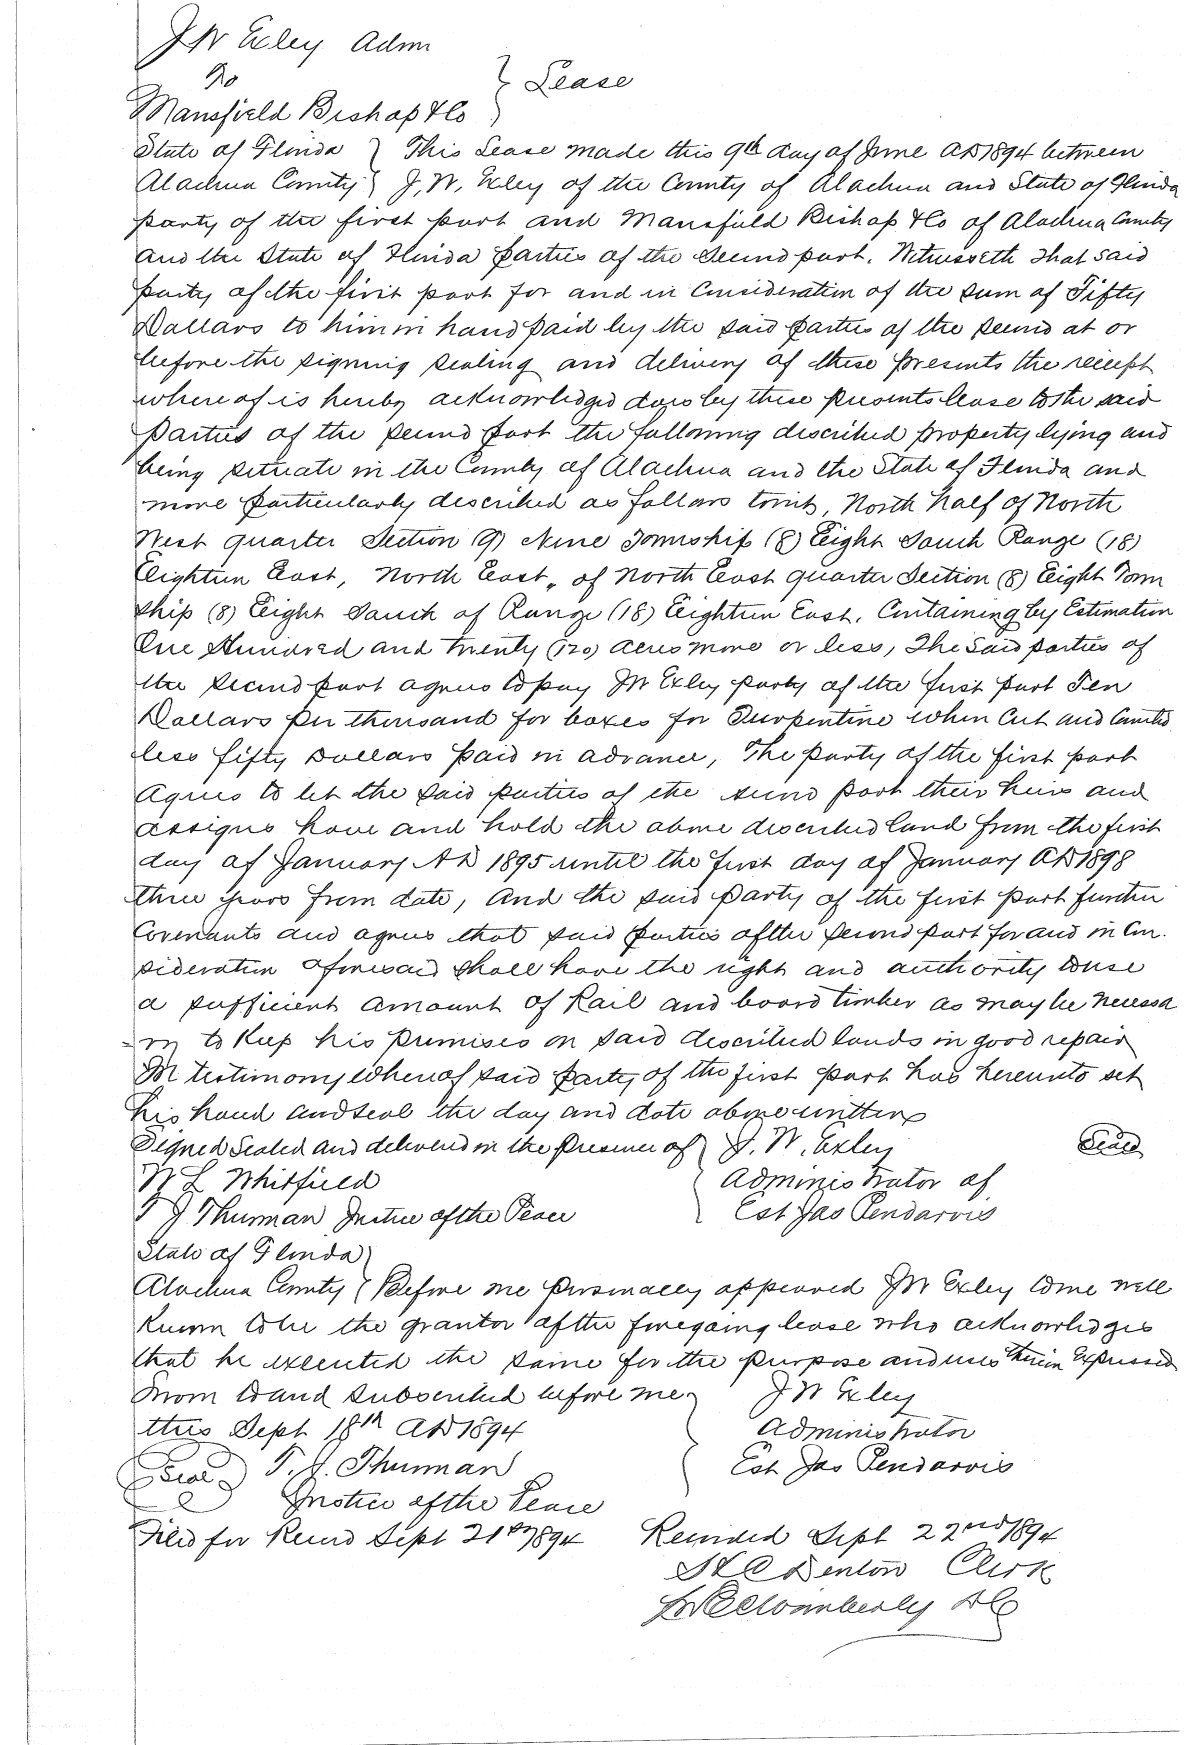 J W Exley Adm
To } Lease
Mansfield Bishop & Co
State of Florida } This Lease made this 9th day of June AD 1894 between
Alachua County } J, W, Exley of the County of Alachua and State of Florida
party of the first part and Mansfield Bishop & Co of Alachua County
and the State of Florida parties of the second part. Witnesseth that said
party of the first part for and in Consideration of the sum of Fifty
Dollars to him in hand paid by the said parties of the second at or
before the signing sealing and delivery of these presents the receipt
where of is hereby acknowledged does by these presents lease to the said
Parties of the second part the following described property lying and
being situate in the County of Alachua and the State of Florida and
more particularly described as follows towit, North half of North
West quarter Section (9) Nine Township (8) Eight South Range (18)
Eighteen East, North East " of North East quarter Section (8) Eight Town
ship (8) Eight South of Range (18) Eighteen East. Containing by Estimation
One Hundred and twenty (120) acres more or less, The said parties of
the second part agrees to pay J W Exley party of the first part Ten
Dollars per thousand for boxes for Turpentine when Cut and Counted
less fifty Dollars paid in advance, The party of the first part
agrees to let the said parties of the second part their heirs and
assigns have and hold the above described land from the first
day of January AD 1895 until the first day of January AD 1898
three years from date, And the said party of the first part further
Covenants and agrees that said parties of the second part for and in Con-
sideration aforesaid shall have the right and authority to use
a sufficient amount of Rail and board timber as may be necessa
-ry to Keep his premises on said described lands in good repair
In testimony whereof said party of the first part has hereunto set
his hand and seal the day and date above written
Signed Sealed and delivered in the presence of } J. W. Exley Seal
W L Whitfield Administrator of
T J Thurman Justice of the Peace Est Jas Pendarvis
State of Florida }
Alachua County } Before me personally appeared J W Exley to me well
Known to be the grantor of the foregoing lease who acknowledges
that he executed the same for the purpose and uses therein Expressed
Sworn to and subscribed before me J W Exley
this Sept 18th AD 1894 Administrator
Seal T. J. Thurman Est Jas Pendarvis
Justice of the Peace
Filed for Record Sept 21st 1894 Recorded Sept 22nd 1894
Denton Clerk
Wimberly DC